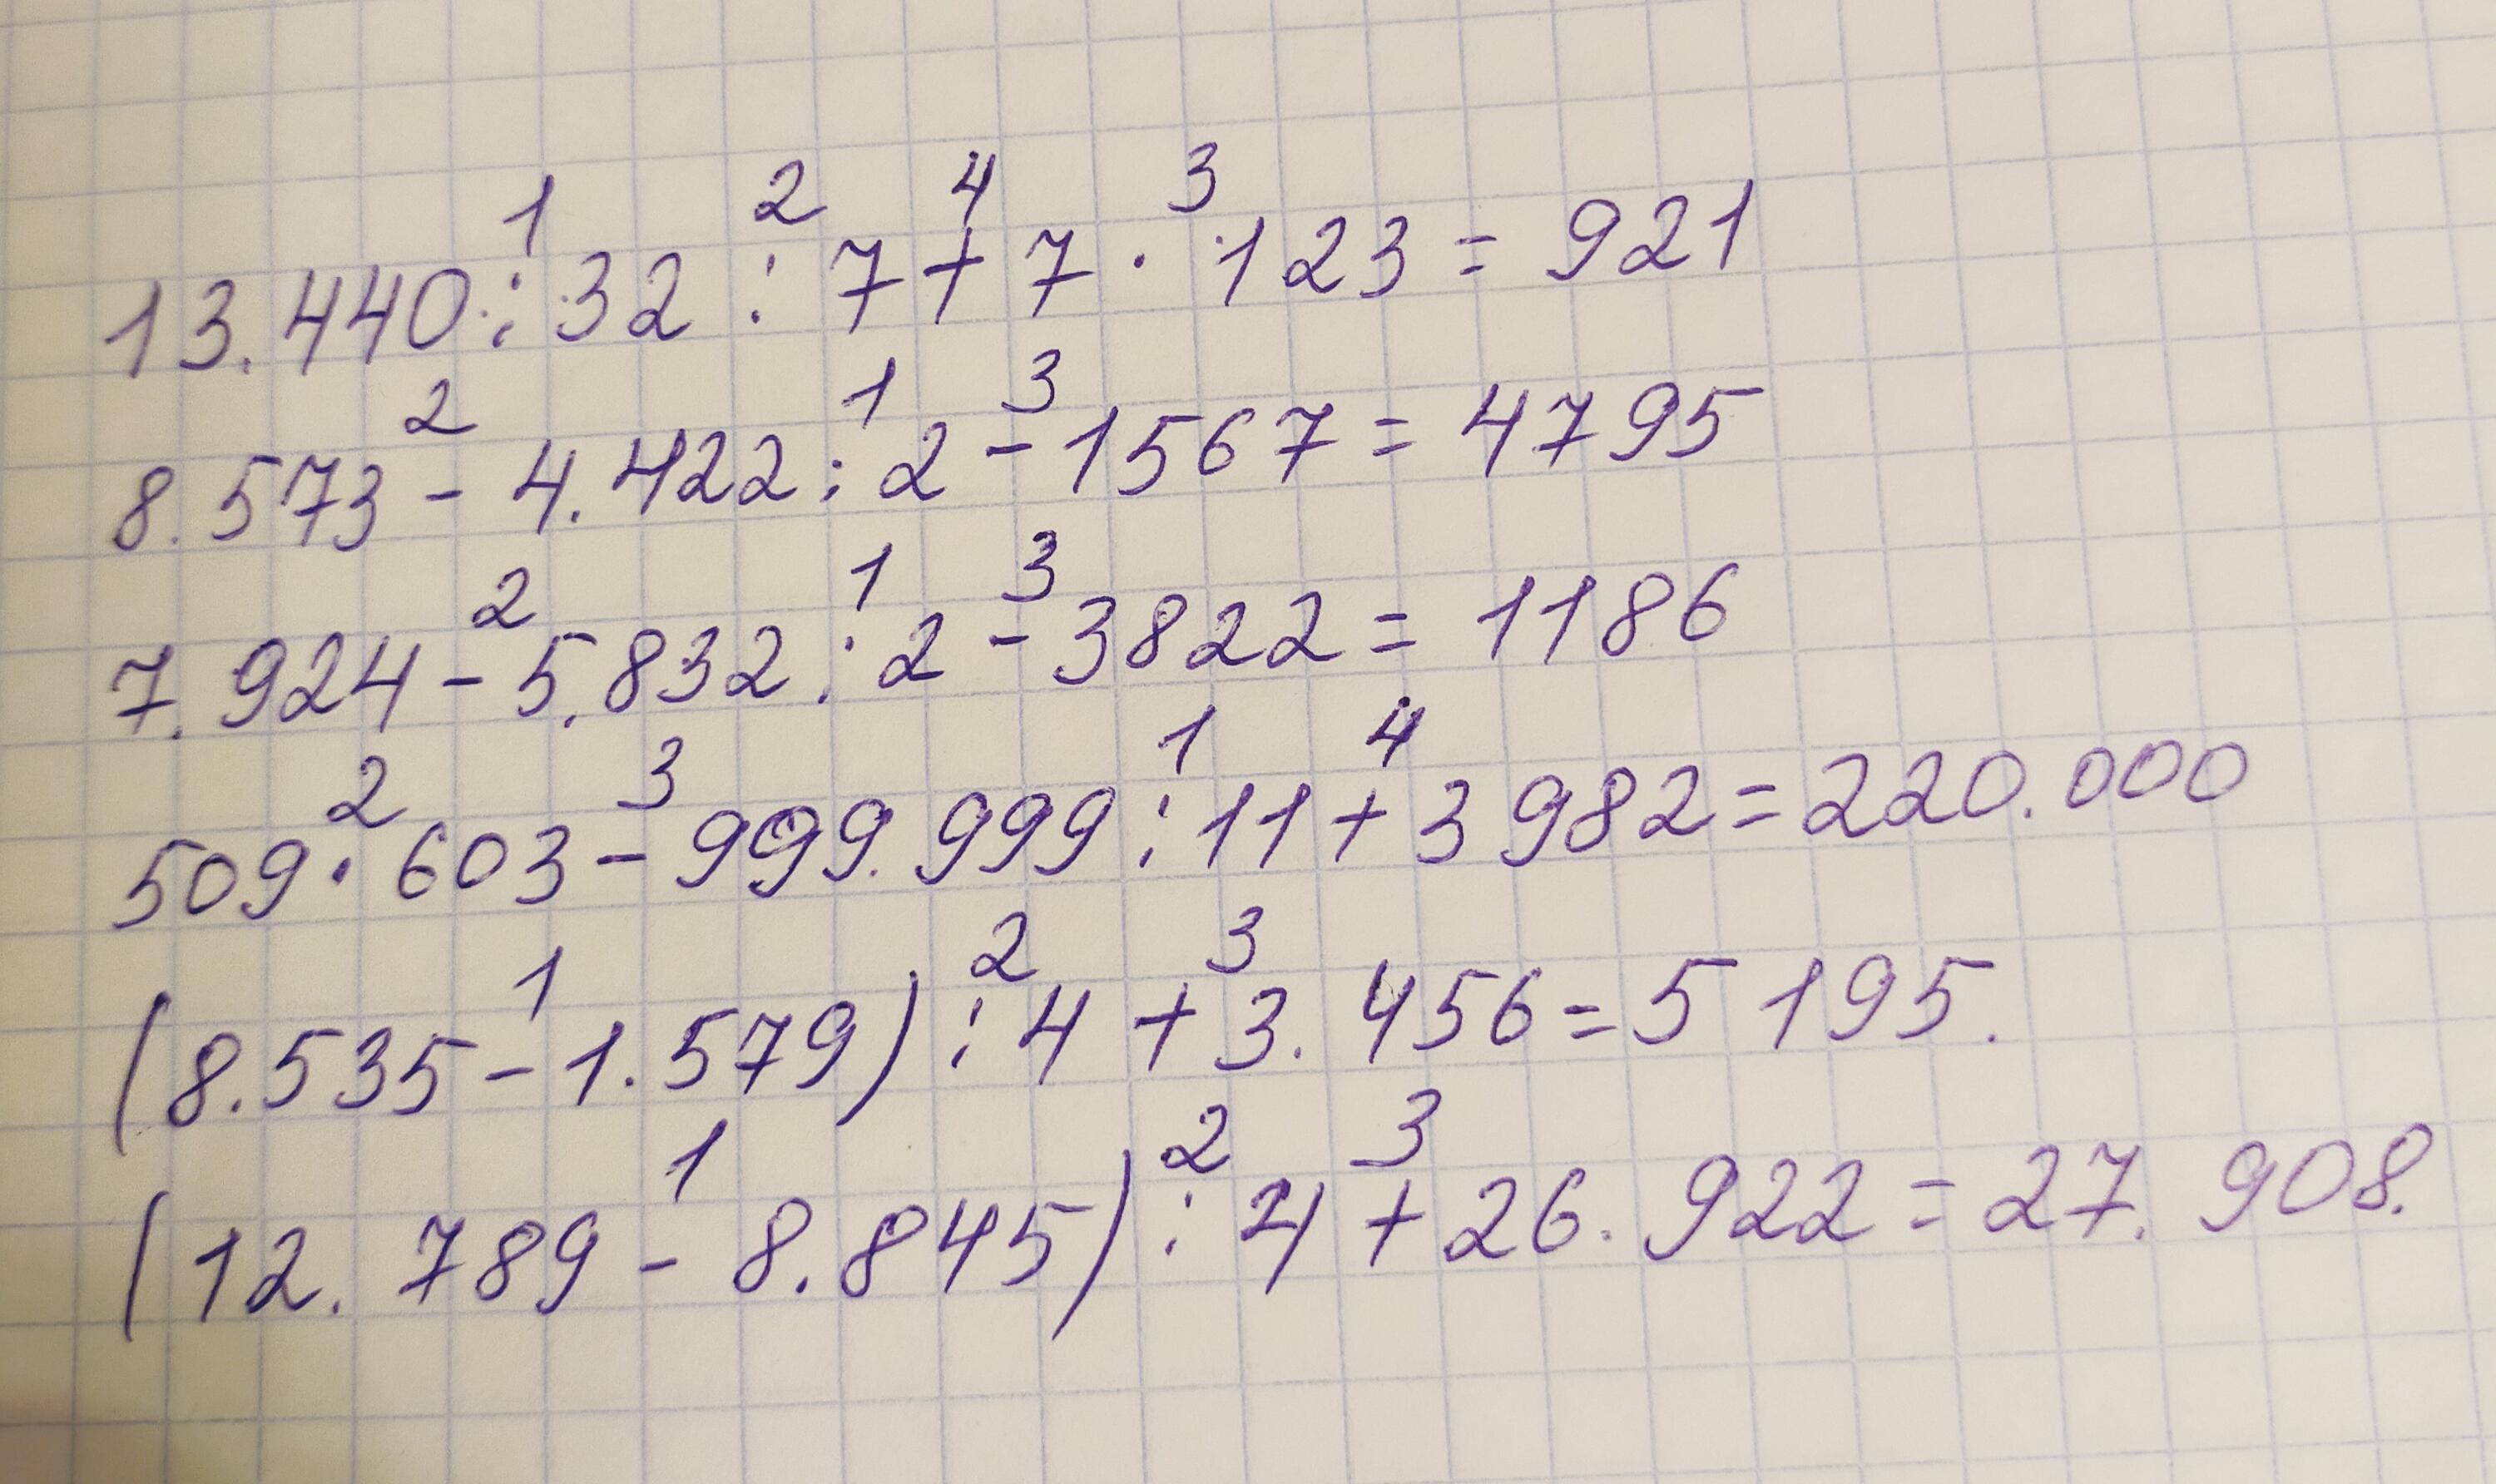 1 2 4 3
13.440 : 32 : 7 + 7 · 123 = 921
2 1 3
8.573 - 4.422 : 2 - 1567 = 4795
2 1 3
7.924 - 5.832 : 2 - 3822 = 1186
2 3 1 4
509 · 603 - 999.999 : 11 + 3982 = 220.000
1 2 3
(8.535 - 1.579) : 4 + 3.456 = 5195.
1 2 3
(12.789 - 8.845) : 4 + 26.922 = 27.908.